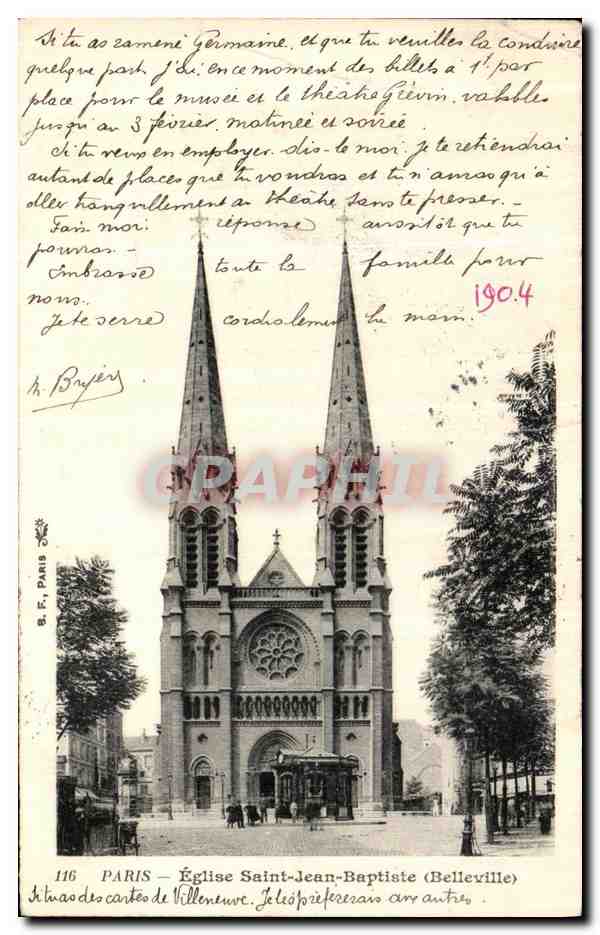 Si tu as ramené Germaine, et que tu veuilles la conduire
quelque part, j'ai, en ce moment des billets à 1f. par
place pour le musée et le théâtre Grévin. valables
jusqu'au 3 février. matinée et soirée.
Si tu veux en employer. dis-le moi. Je te retiendrai
autant de places que tu voudras et tu n'auras qu'à
aller tranquillement au théâtre sans te presser. -
Fais moi réponse aussitôt que tu
pourras -
Embrasse toute la famille pour
nous.
1904
Je te serre cordialement la main.
CARAPHIL
S. F., PARIS
116 PARIS - Église Saint-Jean-Baptiste (Belleville)
Si tu as des cartes de Villeneuve. Je les préfèrerais aux autres.